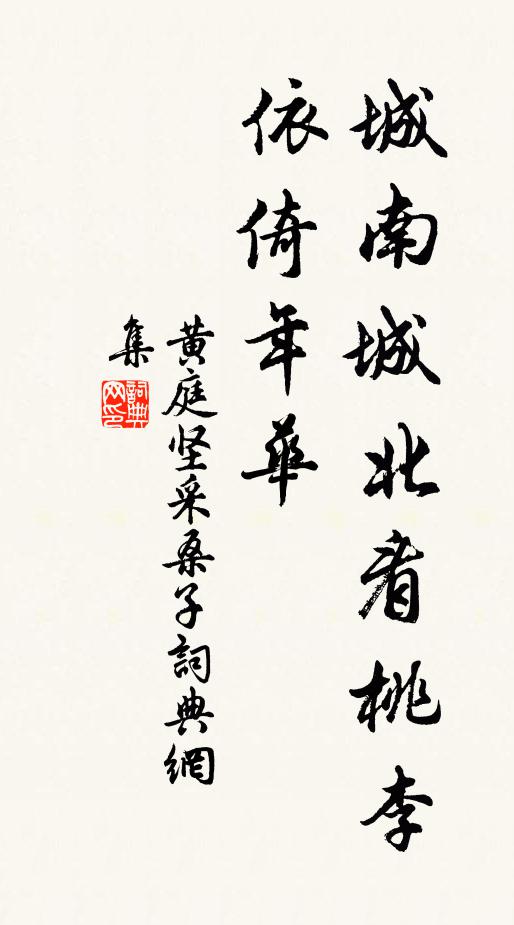 城南城北看桃李
依倚年華
黄庭坚采桑子詞典網
集
詞典網印